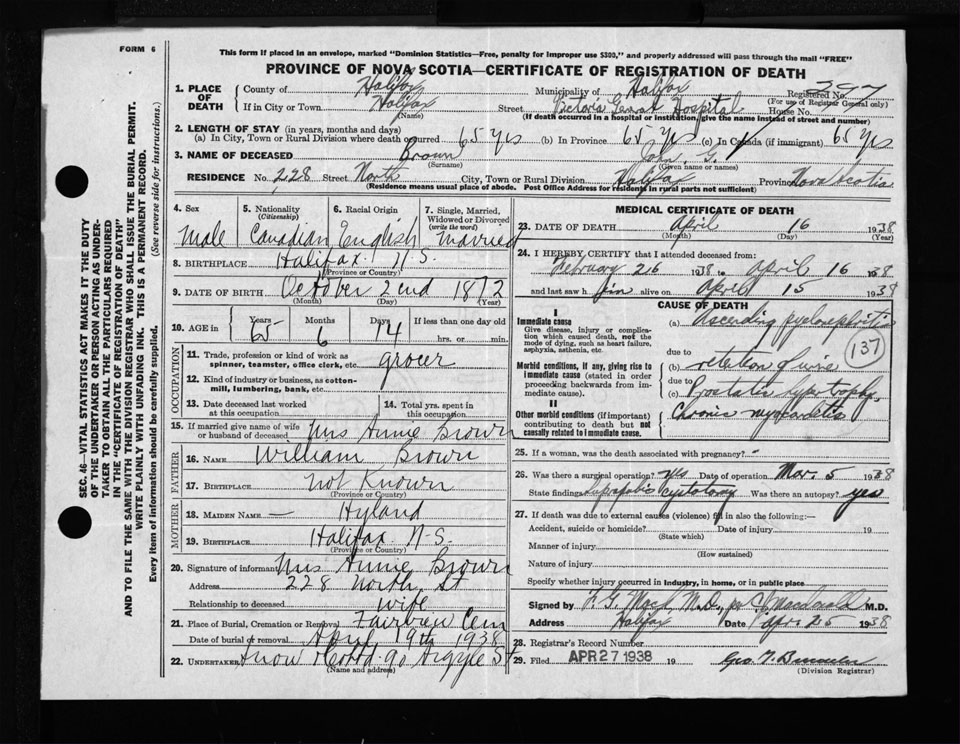 FORM 6
This form if placed in an envelope, marked "Dominion Statistics—Free, penalty for improper use $300," and properly addressed will pass through the mail "FREE"
PROVINCE OF NOVA SCOTIA—CERTIFICATE OF REGISTRATION OF DEATH
SEC. 46—VITAL STATISTICS ACT MAKES IT THE DUTY
OF THE UNDERTAKER OR PERSON ACTING AS UNDER-
TAKER TO OBTAIN ALL THE PARTICULARS REQUIRED
IN THE "CERTIFICATE OF REGISTRATION OF DEATH"
AND TO FILE THE SAME WITH THE DIVISION REGISTRAR WHO SHALL ISSUE THE BURIAL PERMIT.
WRITE PLAINLY WITH UNFADING INK. THIS IS A PERMANENT RECORD.
Every item of information should be carefully supplied. (See reverse side for instructions.)
1. PLACE OF DEATH
County of Halifax Municipality of Halifax Registered No.
(For use of Registrar General only)
If in City or Town Halifax Street Victoria General Hospital House No.
(Name) (If death occurred in a hospital or institution, give the name instead of street and number)
2. LENGTH OF STAY (in years, months and days)
(a) In City, Town or Rural Division where death occurred 65 yrs (b) In Province 65 yrs (c) In Canada (if immigrant) 65 yrs
3. NAME OF DECEASED Brown John G.
(Surname) (Given name or names)
RESIDENCE No. 228 Street North City, Town or Rural Division Halifax Province Nova Scotia
(Residence means usual place of abode. Post Office Address for residents in rural parts not sufficient)
4. Sex Male
5. Nationality (Citizenship) Canadian
6. Racial Origin English
7. Single, Married, Widowed or Divorced (write the word) Married
8. BIRTHPLACE Halifax N.S.
(Province or Country)
9. DATE OF BIRTH October 2end 1872
(Month) (Day) (Year)
10. AGE in Years 65 Months 6 Days 14 If less than one day old
hrs. or min.
OCCUPATION
11. Trade, profession or kind of work as spinner, teamster, office clerk, etc. grocer
12. Kind of industry or business, as cotton-mill, lumbering, bank, etc.
13. Date deceased last worked at this occupation
14. Total yrs. spent in this occupation
15. If married give name of wife or husband of deceased Mrs Annie Brown
FATHER
16. Name William Brown
17. Birthplace Not Known
(Province or Country)
MOTHER
18. Maiden Name — Hyland
19. Birthplace Halifax N.S.
(Province or Country)
20. Signature of informant Mrs Annie Brown
Address 228 North St
Relationship to deceased wife
21. Place of Burial, Cremation or Removal Fairview Cem
Date of burial or removal April 19th 1938
22. Undertaker Snow & Co Ltd. 90 Argyle St
(Name and address)
MEDICAL CERTIFICATE OF DEATH
23. DATE OF DEATH April 16 1938
(Month) (Day) (Year)
24. I HEREBY CERTIFY that I attended deceased from:
February 26 1938 to April 16 1938
and last saw him alive on April 15 1938
CAUSE OF DEATH
I
Immediate cause
Give disease, injury or complication which caused death, not the mode of dying, such as heart failure, asphyxia, asthenia, etc.
(a) Ascending pyelonephritis
137
Morbid conditions, if any, giving rise to immediate cause (stated in order proceeding backwards from immediate cause).
due to
(b) retention of urine
due to
(c) Prostatic hypertrophy
II
Other morbid conditions (if important) contributing to death but not causally related to immediate cause.
Chronic myocarditis
25. If a woman, was the death associated with pregnancy? -
26. Was there a surgical operation? yes Date of operation Mar. 5 1938
State findings Suprapubic cystotomy Was there an autopsy? yes
27. If death was due to external causes (violence) fill in also the following:—
Accident, suicide or homicide? Date of injury 19
(State which)
Manner of injury
(How sustained)
Nature of injury
Specify whether injury occurred in industry, in home, or in public place
Signed by F. G. Mack M.D., per M.D.
Address Halifax Date Apr 25 1938
28. Registrar's Record Number
29. Filed APR 27 1938 19
(Division Registrar)